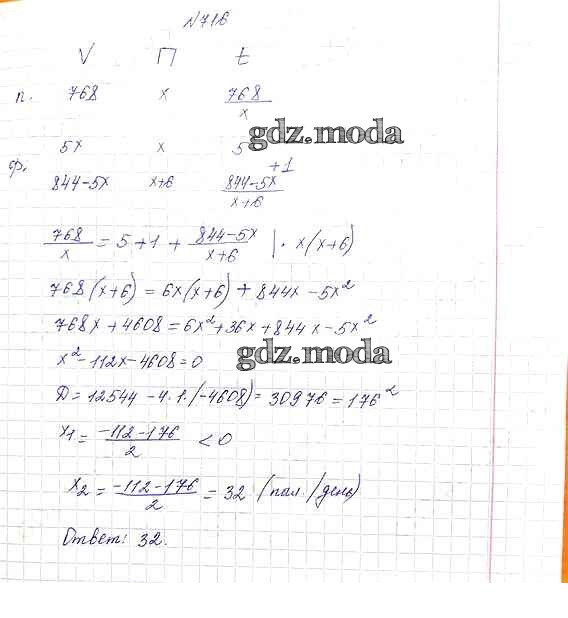 №716
V П t
п. 768 x 768/x
gdz.moda
5x x 5
ф. +1
844-5x x+6 844-5x/x+6
768/x = 5+1+ 844-5x/x+6 | · x(x+6)
768(x+6) = 6x(x+6) + 844x - 5x²
768x + 4608 = 6x² + 36x + 844x - 5x²
x² - 112x - 4608 = 0
gdz.moda
D = 12544 - 4·1·(-4608) = 30976 = 176²
x₁ = -112-176/2 < 0
x₂ = -112-176/2 = 32 (пол./день)
Ответ: 32.